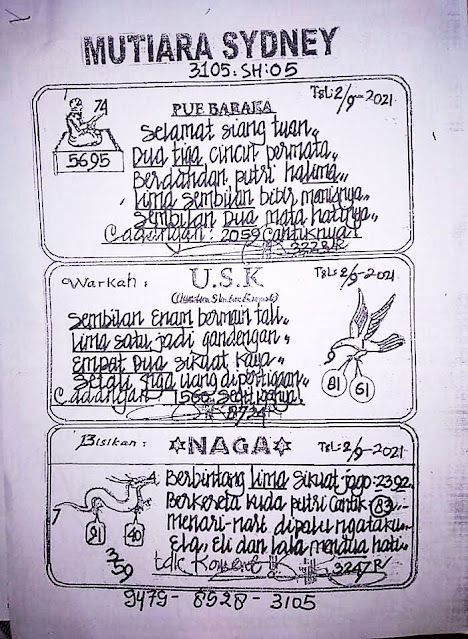 MUTIARA SYDNEY
3105. SH: 05
74
5695
PUE BARAKA
Tgl: 2/9-2021
Selamat siang tuan,,
Dua tiga cincin permata,,
Berdandan putri halima,,
Lima Sembilan bibir manisnya,,
Sembilan Dua mata hatinya,,
Cadangan: 2059 Cantiknya!
3223/R
Warkah:
U.S.K
Tgl: 2/9-2021
Sembilan Enam bermain tali,,
Lima satu jadi gandengan,,
Empat Dua Sikuat Kaya,,
Setali tiga uang
Cadangan
8724
81
61
Bisikan:
NAGA
Tgl: 2/9-2021
Berbintang lima Sikuat jago: 2392
Berkereta kuda putri Cantik. 83
menari-nari dipalu
Ela,, Eli dan lala
91
40
3/50
3247 R/
9479 - 8528 - 3105